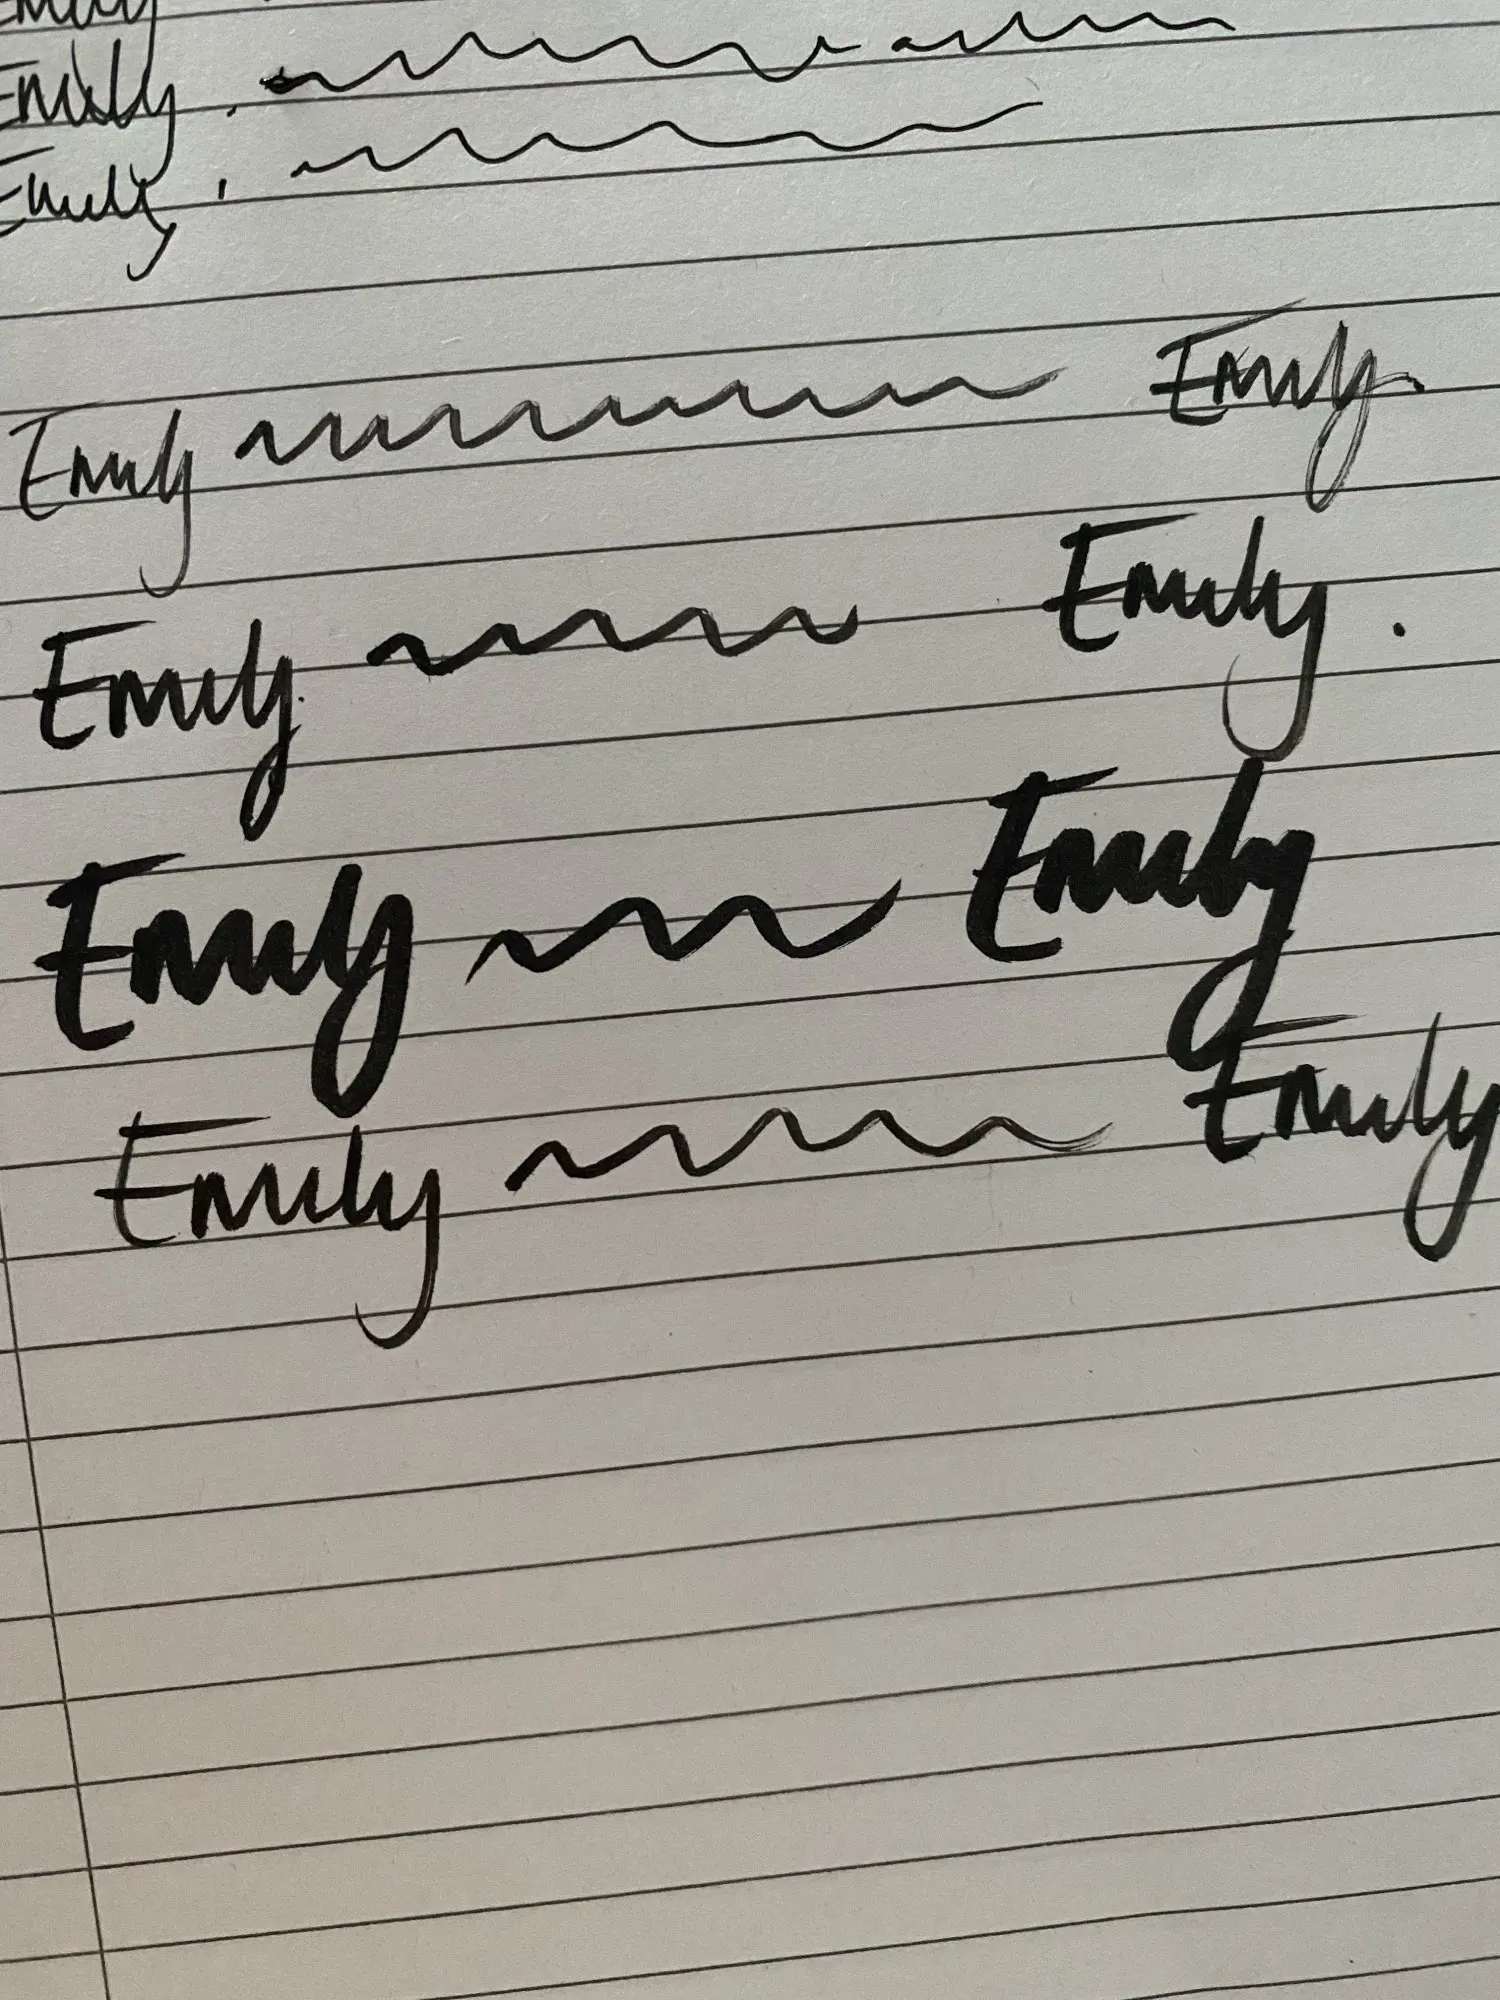 Emily
Emily
Emily
Emily Emily
Emily Emily
Emily Emily
Emily Emily